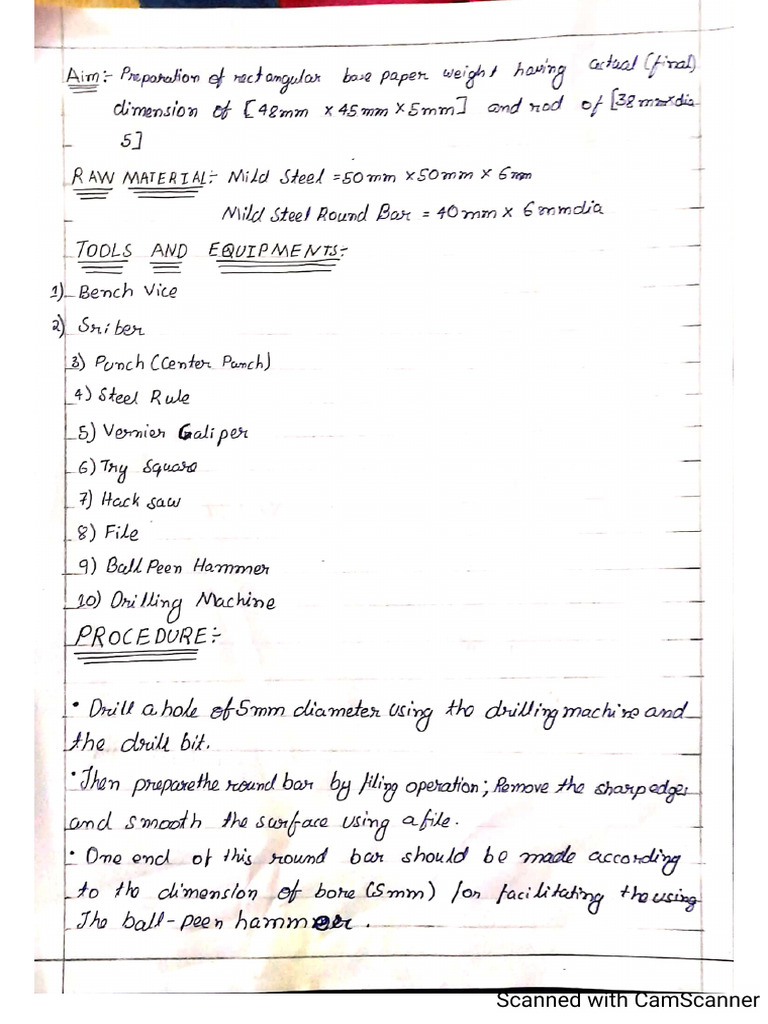 Aim:- Preparation of rectangular base paper weight having actual (final)
dimension of [48mm x 45mm x 5mm] and rod of [38mm x dia
5]
RAW MATERIAL:- Mild Steel = 50mm x 50mm x 6mm
Mild Steel Round Bar = 40mm x 6mm dia
TOOLS AND EQUIPMENTS:-
1) Bench Vice
2) Sriber
3) Punch (Center Punch)
4) Steel Rule
5) Vernier Galiper
6) Try Square
7) Hack saw
8) File
9) Ball Peen Hammer
10) Drilling Machine
PROCEDURE:-
• Drill a hole of 5mm diameter using the drilling machine and
the drill bit.
• Then prepare the round bar by filing operation; Remove the sharp edges
and smooth the surface using a file.
• One end of this round bar should be made according
to the dimension of bore (5mm) for facilitating the using
The ball-peen hammer.
Scanned with CamScanner